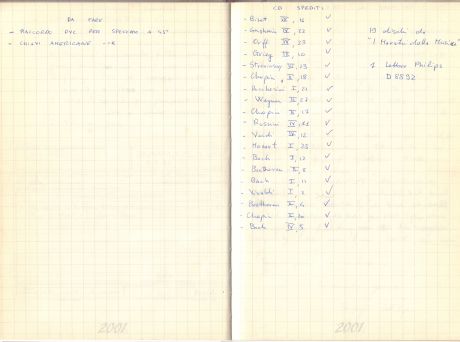 DA FARE
- RACCORDO PVC PER SPECCHIO A 45°
- CHIAVI AMERICANE
2001
CD SPEDITI
- Bizet IX, 16 ✓
- Gershwin IX, 22 ✓
- Orff IX, 23 ✓
- Grieg IX, 20 ✓
- Stravinsky VI, 23 ✓
- Chopin I, 18 ✓
- Boccherini I, 21 ✓
- Wagner ✓
- Chopin 17 ✓
- Rossini IV, 21 ✓
- Verdi IX, 12 ✓
- Mozart I, 25 ✓
- Bach I, 12 ✓
- Beethoven 8 ✓
- Bach I, 11 ✓
- Vivaldi I, 2 ✓
- Beethoven I, 4 ✓
- Chopin I, 20 ✓
- Bach IV, 5 ✓
19 dischi de
"I Maestri della Musica"
1 Lettore Philips
D8892
2001